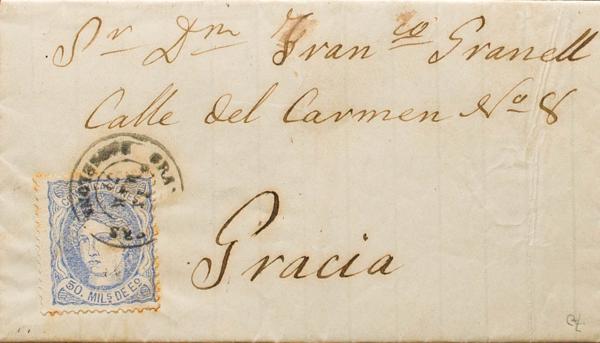 Sr Dn Franco Granell
Calle del Carmen No 8
Gracia
COMUNICACIONES
50. MILS DE Eo